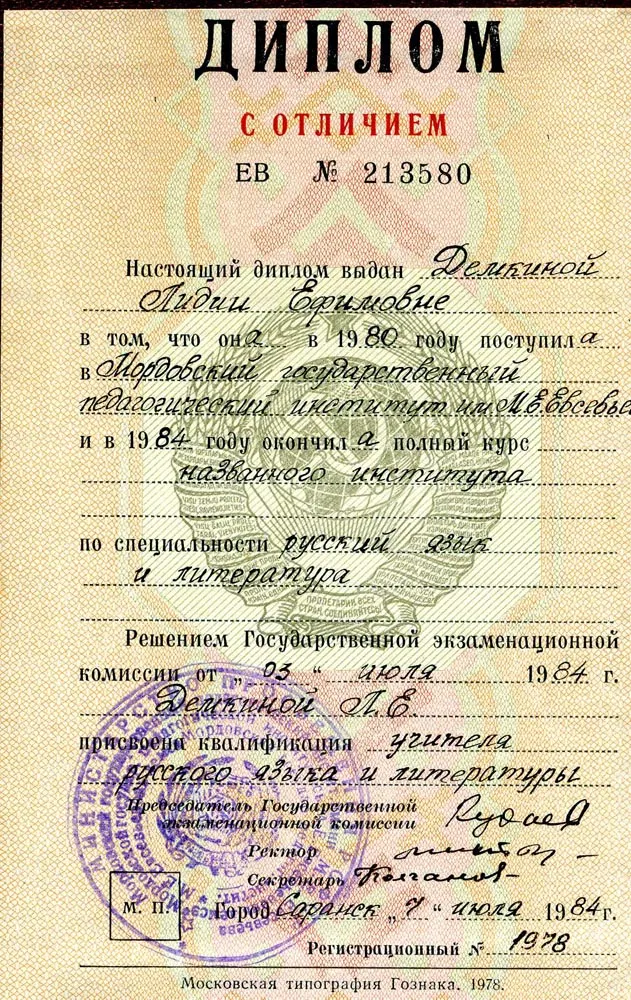 ДИПЛОМ
С ОТЛИЧИЕМ
ЕВ № 213580
Настоящий диплом выдан Демкиной
Лидии Ефимовне
в том, что она в 1980 году поступила
в Мордовский государственный
педагогический институт им. М.Е.Евсевье
и в 1984 году окончила полный курс
названного института
по специальности русский язык
и литература
ПРОЛЕТАРИИ ВСЕХ
СТРАН, СОЕДИНЯЙТЕСЬ!
Решением Государственной экзаменационной
комиссии от „03“ июля 1984 г.
Демкиной Л.Е.
присвоена квалификация учителя
русского языка и литературы
Председатель Государственной
экзаменационной комиссии
Ректор
Секретарь
М. П.
Город Саранск „7“ июля 1984 г.
Регистрационный № 1978
Московская типография Гознака. 1978.